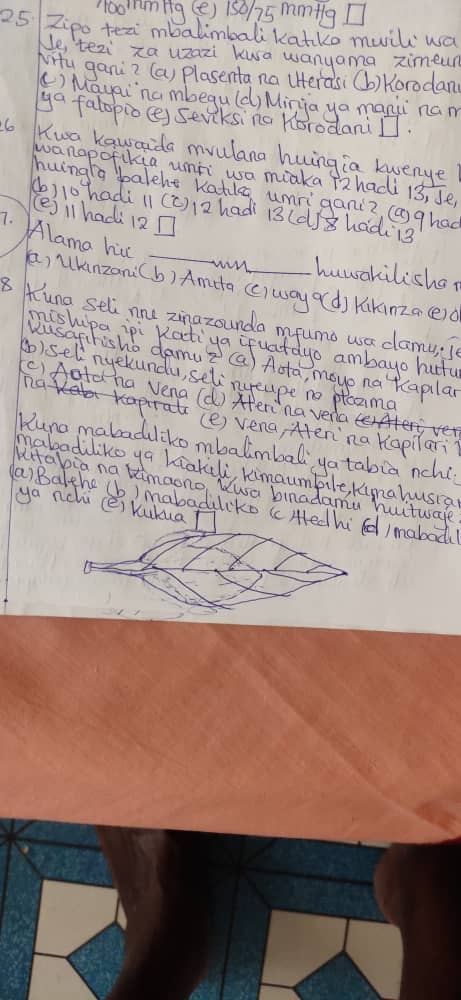 100 mmHg (e) 150/75 mmHg □
25. Zipo tezi mbalimbali katika mwili wa
Je, tezi za uzazi kwa wanyama zimeun
vitu gani? (a) Plasenta na Uterasi (b) Korodani
(c) Mayai na mbegu (d) Mirija ya manii na m
ya falopio (e) Seviksi na Korodani □.
26 Kwa kawaida mvulana huingia kwenye
wanapofikia umri wa miaka 12 hadi 13, Je,
huingia balehe katika umri gani? (a) 9 had
(b) 10 hadi 11 (c) 12 hadi 13 (d) 8 hadi 13
(e) 11 hadi 12 □
7. Alama hii huwakilisha
(a) Ukinzani (b) Amita (c) waya (d) Kikinza (e)
8 Kuna seli nne zinazounda mfumo wa damu. Je
mishipa ipi kati ya ifuatayo ambayo hutum
kusafirisha damu? (a) Aota, moyo na Kapilar
(b) seli nyekundu, seli nyeupe na plazima
(c) Aota na vena (d) Ateri na vena (e) Ateri, ven
na kapilari (e) vena, Ateri na Kapilari
Kuna mabadiliko mbalimbali ya tabia nchi.
mabadiliko ya kiakili, kimaumbile,
kitabia na kimaono, kwa binadamu huitwaje
(a) Balehe (b) mabadiliko (c) Atedhi (d) mabadil
ya nchi (e) Kukua □